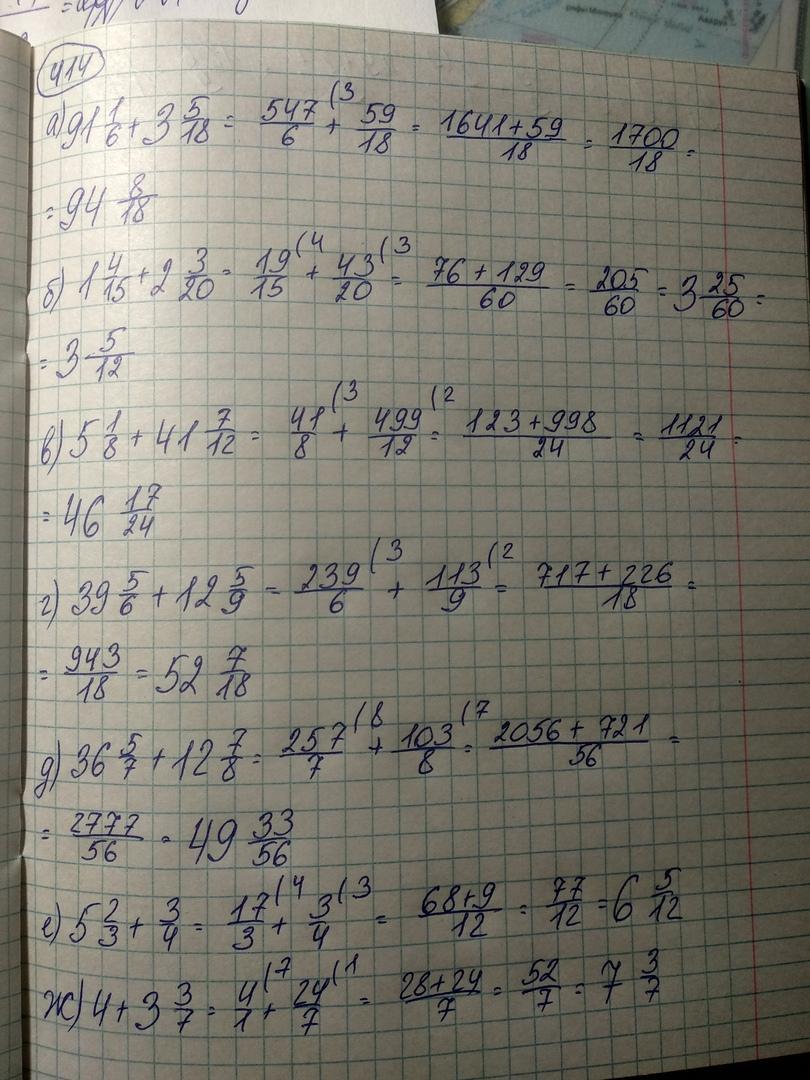 414
а) 91 1/6 + 3 5/18 = 547/6 (3 + 59/18 = 1641+59/18 = 1700/18 =
= 94 8/18
б) 1 4/15 + 2 3/20 = 19/15 (4 + 43/20 (3 = 76+129/60 = 205/60 = 3 25/60 =
= 3 5/12
в) 5 1/8 + 41 7/12 = 41/8 (3 + 499/12 (2 = 123+998/24 = 1121/24 =
= 46 17/24
г) 39 5/6 + 12 5/9 = 239/6 (3 + 113/9 (2 = 717+226/18 =
= 943/18 = 52 7/18
д) 36 5/7 + 12 7/8 = 257/7 (8 + 103/8 (7 = 2056+721/56 =
= 2777/56 = 49 33/56
е) 5 2/3 + 3/4 = 17/3 (4 + 3/4 (3 = 68+9/12 = 77/12 = 6 5/12
ж) 4 + 3 3/7 = 4/1 (7 + 24/7 (1 = 28+24/7 = 52/7 = 7 3/7